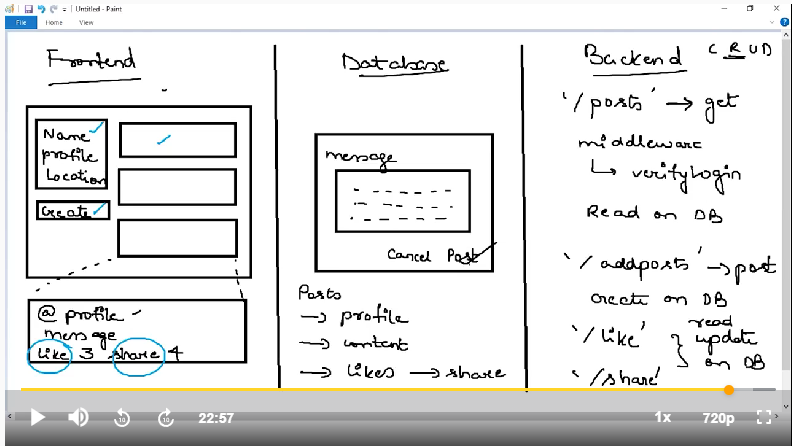 Untitled - Paint
File Home View
Frontend
Name
profile
Location
Create
@ profile
message
like 3 share 4
Database
message
Cancel Post
Posts
→ profile
→ content
→ likes → share
Backend
CRUD
'/posts' → get
middleware
verifyLogin
Read on DB
'/addposts' → post
create on DB
'/like' read
update
on DB
'/share'
22:57
1x 720p
10 10